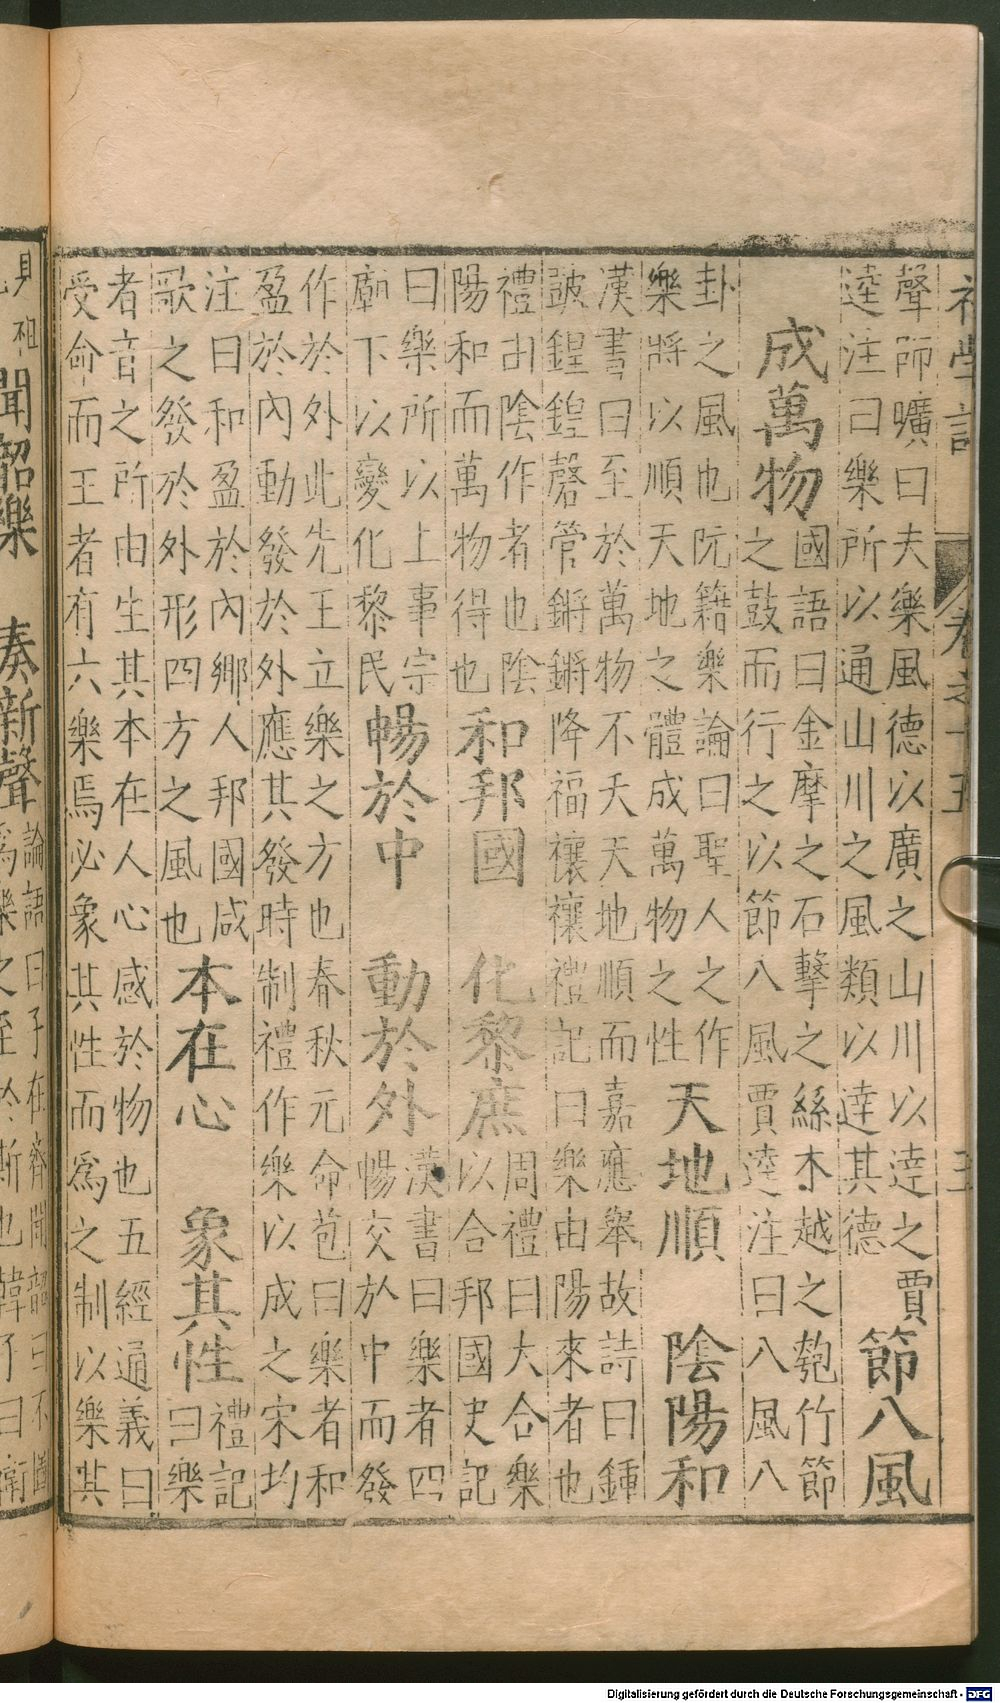 聲師曠曰夫樂風德以廣之山川以逹之賈
逵注曰樂所以通山川之風類以逹其德
節八風
成萬物
國語曰金摩之石擊之絲木越之匏竹節
之鼓而行之以節八風賈逵注曰八風八
卦之風也阮籍樂論曰聖人之作
樂將以順天地之體成萬物之性
天地順
陰陽和
漢書曰至於萬物不夭天地順而嘉應舉故詩曰鍾
鼓鍠鍠磬管鏘鏘降福穰穰禮記曰樂由陽來者也
禮由陰作者也陰
陽和而萬物得也
和邦國
化黎庶
周禮曰大合樂
以合邦國史記
曰樂所以上事宗
廟下以變化黎民
暢於中
動於外
漢書曰樂者四
暢交於中而發
作於外此先王立樂之方也春秋元命苞曰樂者和
盈於內動發於外應其發時制禮作樂以成之宋均
注曰和盈於內鄉人邦國咸
歌之發於外形四方之風也
本在心
象其性
禮記
曰樂
者音之所由生其本在人心感於物也五經通義曰
受命而王者有六樂焉必象其性而爲之制以樂其
聞韶樂
奏新聲
論語曰子在齊聞韶曰不圖
爲樂之至於斯也韓子曰衛
Digitalisierung gefördert durch die Deutsche Forschungsgemeinschaft - DFG